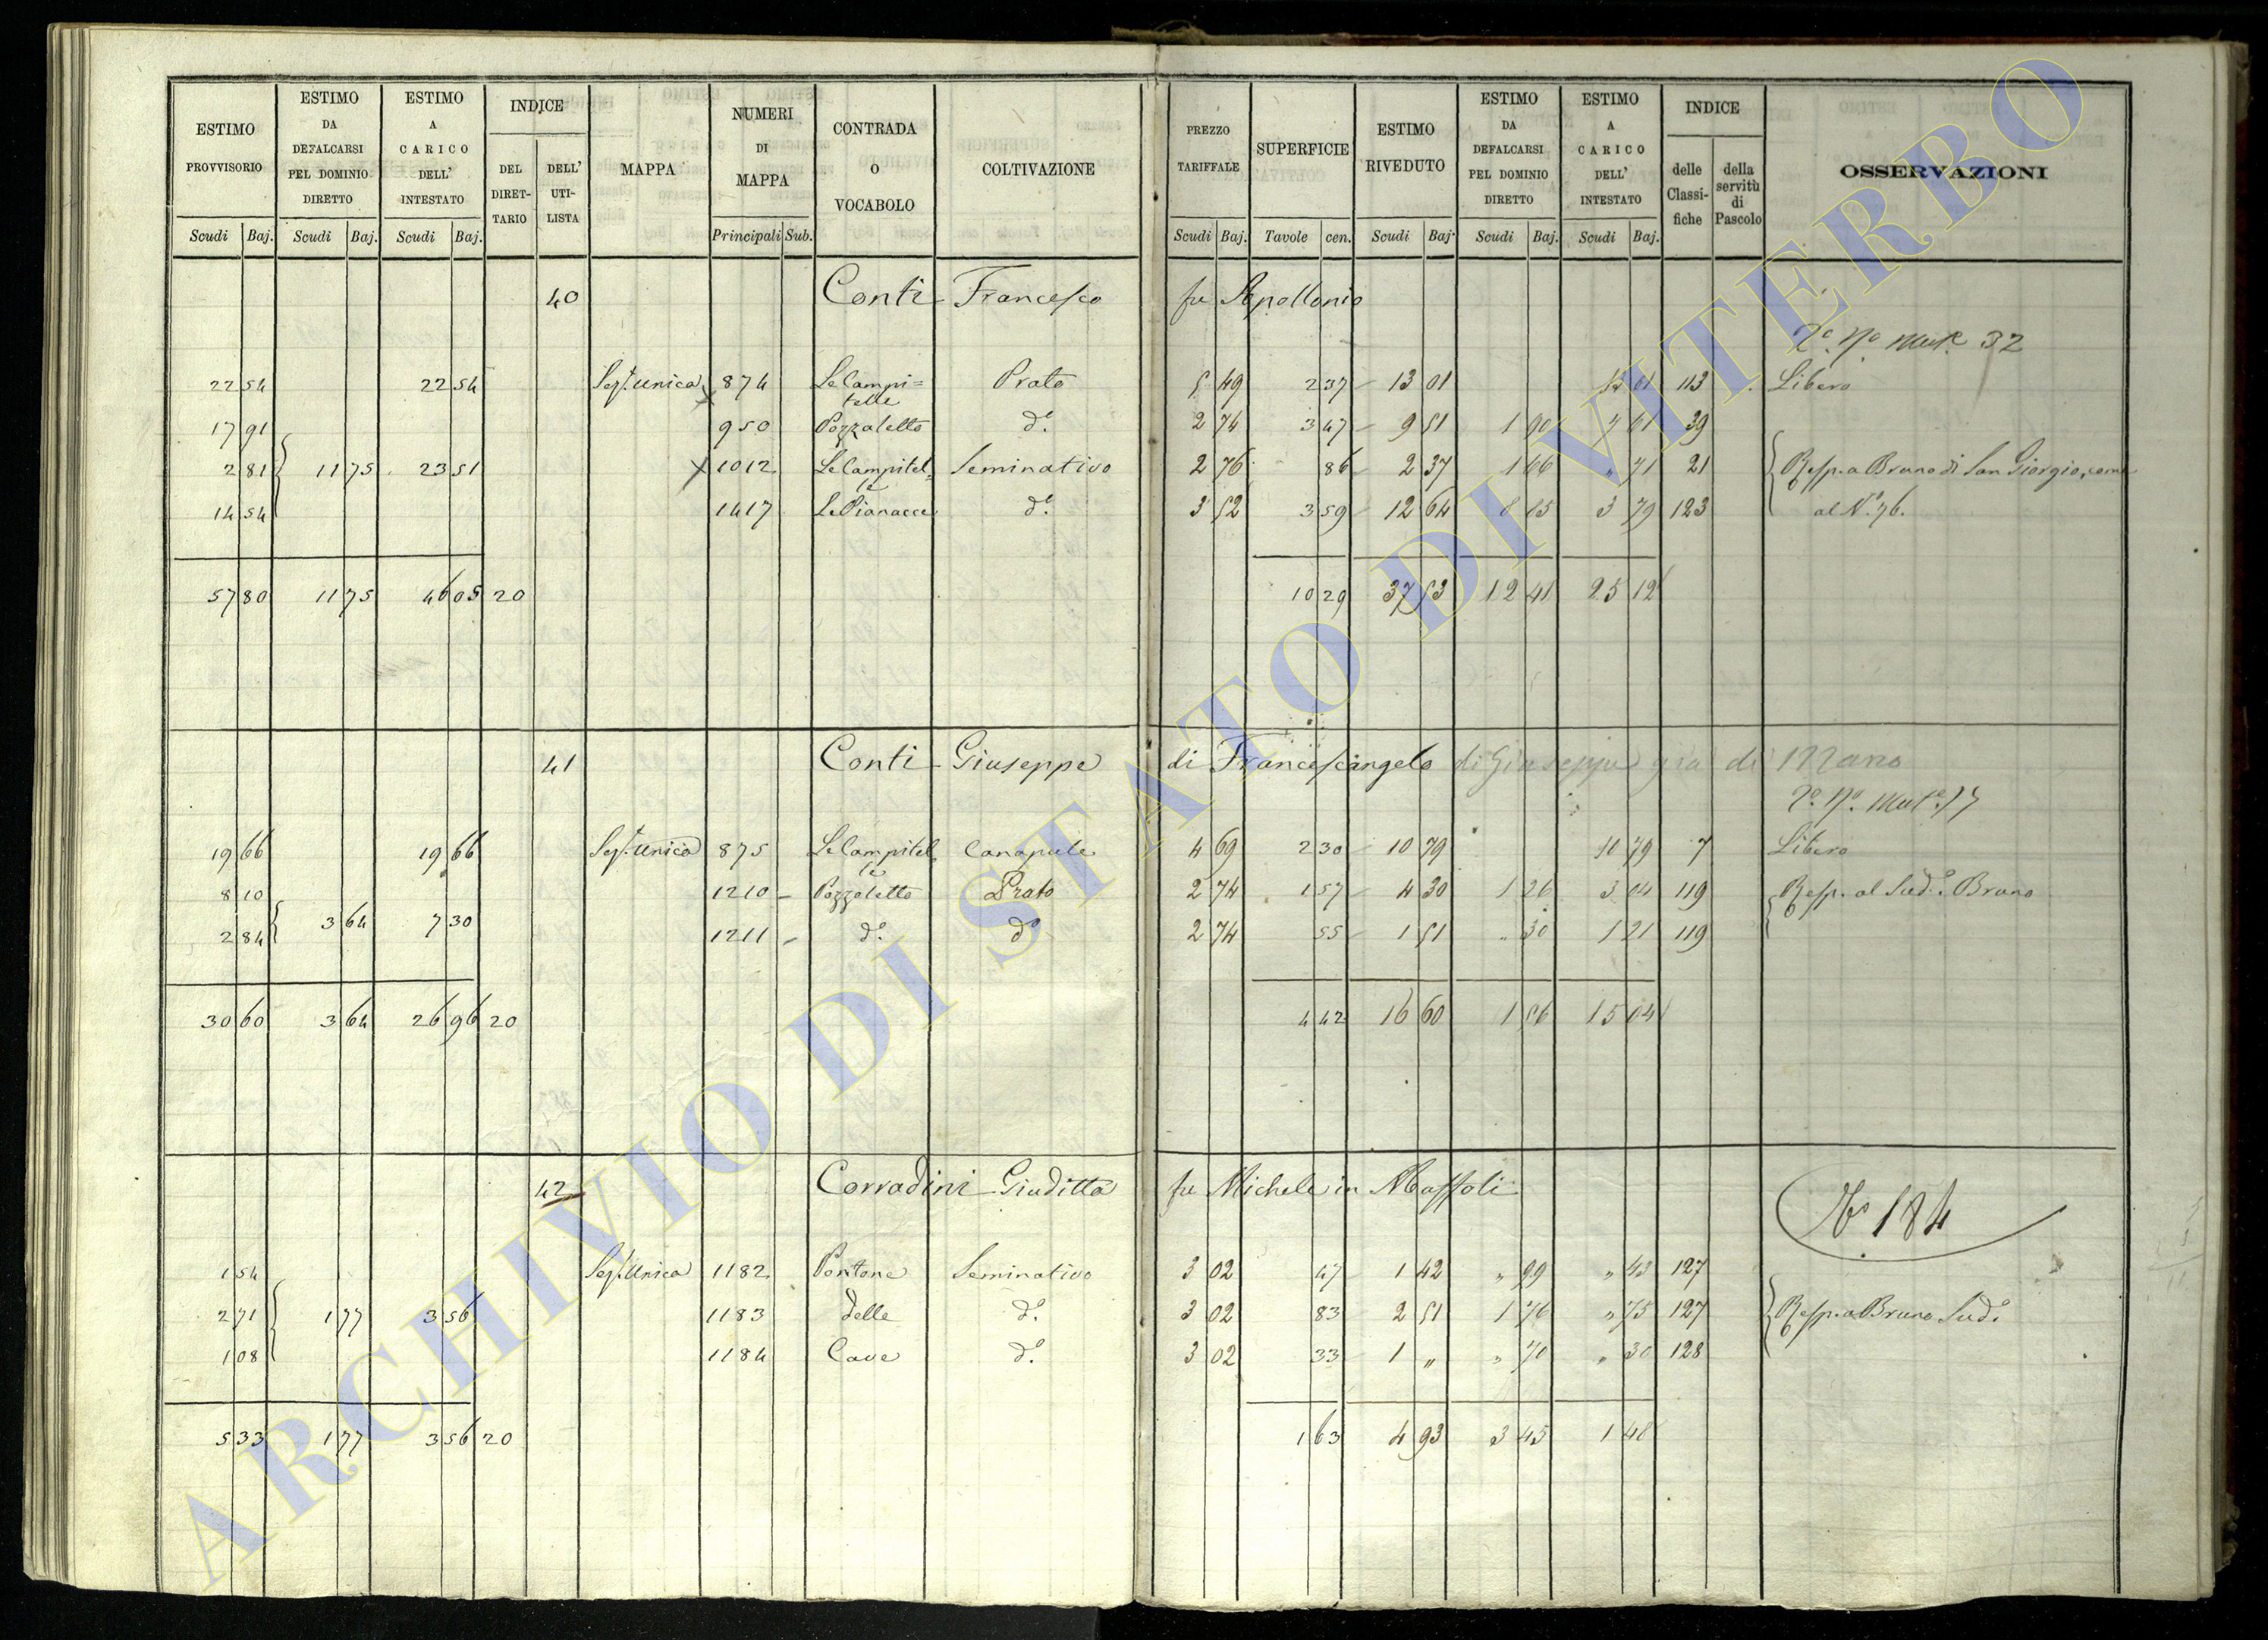 ESTIMO PROVVISORIO | ESTIMO DA DEFALCARSI PEL DOMINIO DIRETTO | ESTIMO A CARICO DELL' INTESTATO | INDICE DEL DIRET-TARIO | DELL' UTI-LISTA | MAPPA | NUMERI DI MAPPA | CONTRADA O VOCABOLO | COLTIVAZIONE | PREZZO TARIFFALE | SUPERFICIE | ESTIMO RIVEDUTO | ESTIMO DA DEFALCARSI PEL DOMINIO DIRETTO | ESTIMO A CARICO DELL' INTESTATO | INDICE delle Classi-fiche | della servitù di Pascolo | OSSERVAZIONI
Scudi | Baj. | Scudi | Baj. | Scudi | Baj. | Principali | Sub. | Scudi | Baj. | Tavole | cen. | Scudi | Baj. | Scudi | Baj. | Scudi | Baj.
40 Conti Francesco fu Apollonio
32
22 54 | 22 54 | Sez. Unica | 874 | Le Campi= telle | Prato | 5 49 | 2 37 | 13 01 | 13 01 | 113 | Libero
17 91 | 950 | Pozzaletto | d.° | 2 74 | 3 47 | 9 51 | 1 90 | 7 61 | 39
2 81 | 11 75 | 23 51 | 1012 | Le Campitel= le | Seminativo | 2 76 | 86 | 2 37 | 1 66 | " 71 | 21 | Resp. a Bruno di San Giorgio, come
14 54 | 1417 | Le Pianacce | d.° | 3 52 | 3 59 | 12 64 | 8 85 | 3 79 | 123 | al N.° 76.
57 80 | 11 75 | 46 05 | 20 | 10 29 | 37 53 | 12 41 | 25 12
41 Conti Giuseppe di Francescangelo di Giuseppe
19 66 | 19 66 | Sez. Unica | 875 | Le Campitel= le | Canapule | 4 69 | 2 30 | 10 79 | 10 79 | 7 | Libero
8 10 | 1210 | Pozzaletto | Prato | 2 74 | 1 57 | 4 30 | 1 26 | 3 04 | 119 | Resp. al Sud.° Bruno
2 84 | 3 64 | 7 30 | 1211 | d.° | d.° | 2 74 | 55 | 1 51 | " 30 | 1 21 | 119
30 60 | 3 64 | 26 96 | 20 | 4 42 | 16 60 | 1 56 | 15 04
42 Corradini Giuditta fu Michele in Maffoli
N.° 184
1 54 | Sez. Unica | 1182 | Pontone | Seminativo | 3 02 | 47 | 1 42 | " 99 | " 43 | 127
2 71 | 1 77 | 3 56 | 1183 | delle | d.° | 3 02 | 83 | 2 51 | 1 76 | " 75 | 127 | Resp. a Bruno Sud.°
1 08 | 1184 | Cave | d.° | 3 02 | 33 | 1 " | " 70 | " 30 | 128
5 33 | 1 77 | 3 56 | 20 | 1 63 | 4 93 | 3 45 | 1 48
ARCHIVIO DI STATO DI VITERBO